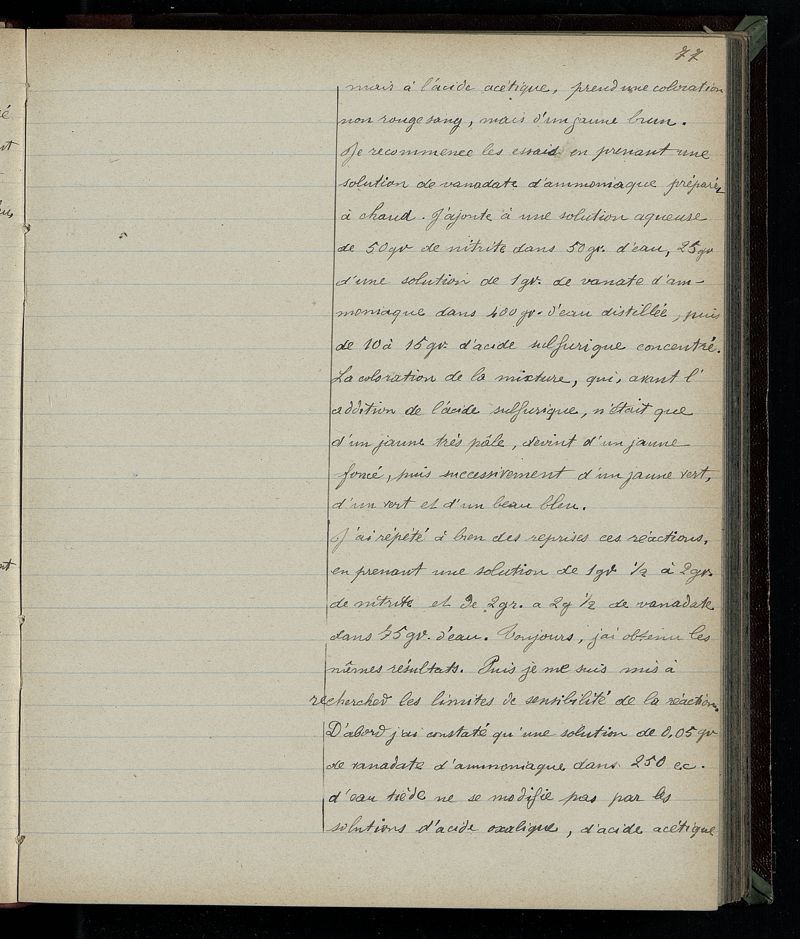 77
mais à l'acide acétique, prend une coloration
non rouge sang, mais d'un jaune brun.
Je recommence les essais en prenant une
solution de vanadate d'ammoniaque préparée
à chaud. J'ajoute à une solution aqueuse
de 50 gr de nitrite dans 50 gr. d'eau, 25 gr
d'une solution de 1 gr. de vanate d'am-
moniaque dans 400 gr. d'eau distillée, puis
de 10 à 15 gr. d'acide sulfurique concentré.
La coloration de la mixture, qui, avant l'
addition de l'acide sulfurique, n'était que
d'un jaune très pâle, devint d'un jaune
foncé, puis successivement d'un jaune vert,
d'un vert et d'un beau bleu.
J'ai répété à bien des reprises ces réactions,
en prenant une solution de 1 gr ½ à 2 gr.
de nitrite et de 2 gr. a 2 g ½ de vanadate
dans 75 gr. d'eau. Toujours, j'ai obtenu les
mêmes résultats. Puis je me suis mis à
rechercher les limites de sensibilité de la réaction.
D'abord j'ai constaté qu'une solution de 0,05 gr
de vanadate d'ammoniaque dans 250 cc.
d'eau tiède ne se modifie pas par les
solutions d'acide oxalique, d'acide acétique